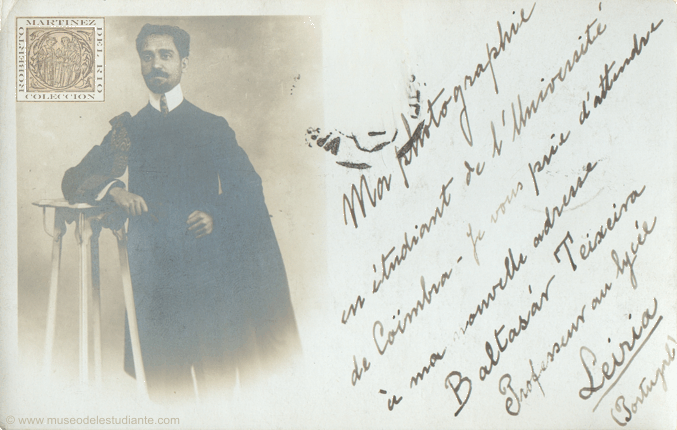 ROBERTO
MARTINEZ
DEL RIO
COLECCION
Ma photographie
en étudiant de l'Université
de Coïmbra - Je vous prie d'attendre
à ma nouvelle adresse
Baltasár Teixeira
Professeur au lycée
Leiria
(Portugal)
© www.museodelestudiante.com